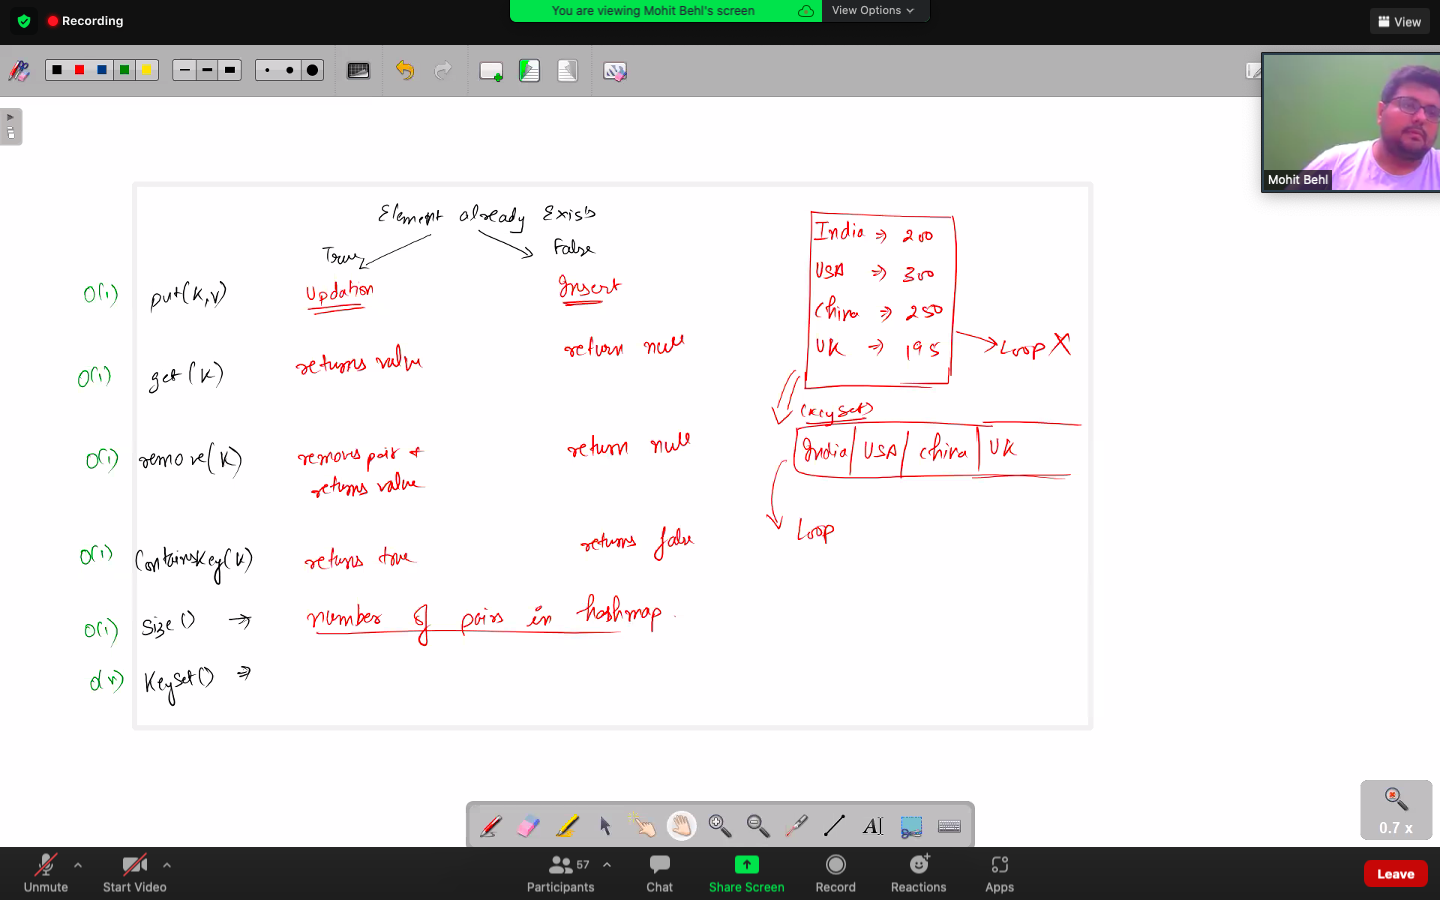 Recording
You are viewing Mohit Behl's screen
View Options
View
Mohit Behl
Element already Exists
True
False
O(1) put(K,V) Updation Insert
O(1) get(K) returns value return null
O(1) remove(K) removes pair & return null
returns value
O(1) ContainsKey(K) returns true returns false
O(1) Size() → number of pairs in hashmap.
O(n) KeySet() ⇒
India ⇒ 200
USA ⇒ 300
China ⇒ 250
UK ⇒ 195
Loop X
(KeySet)
India USA China UK
Loop
A
0.7 x
Unmute
Start Video
57
Participants
Chat
Share Screen
Record
Reactions
Apps
Leave